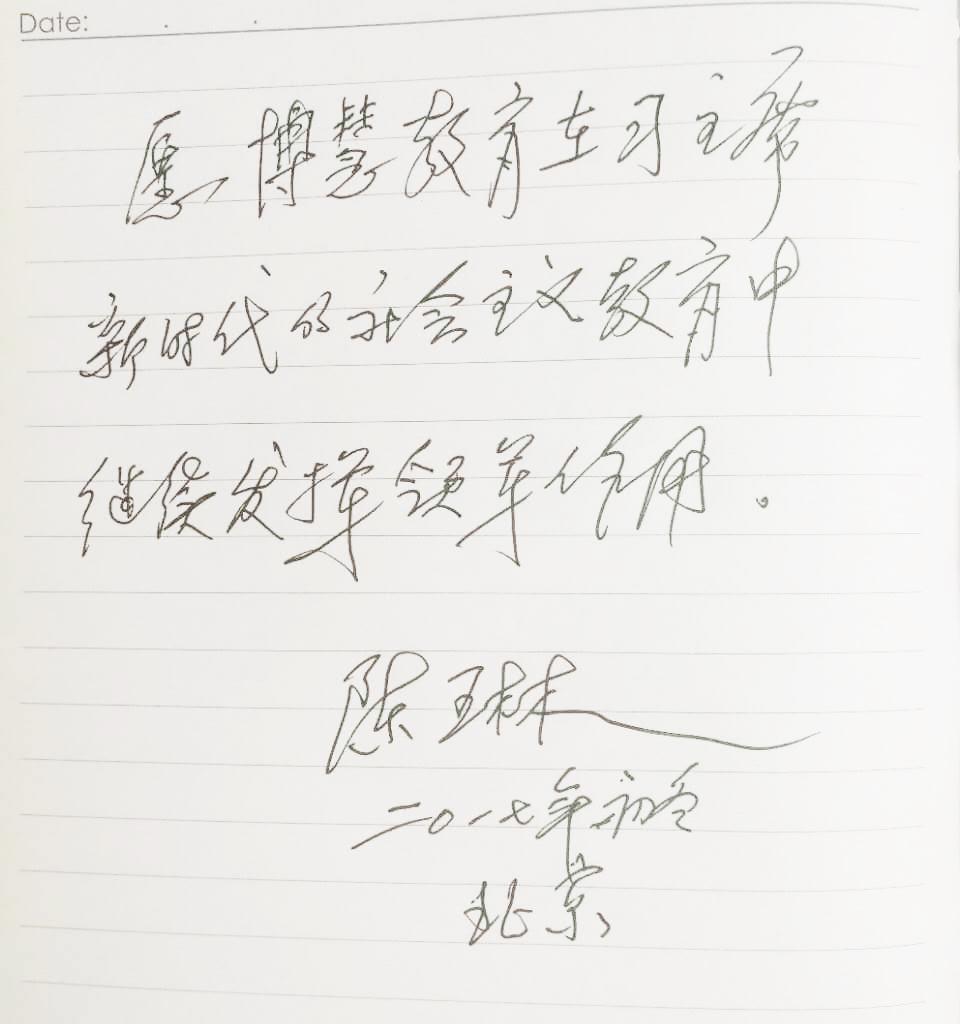 Date:
愿博慧教育在习主席
新时代的社会主义教育中
继续发挥领军作用。
陈琳
二〇一七年初冬
北京